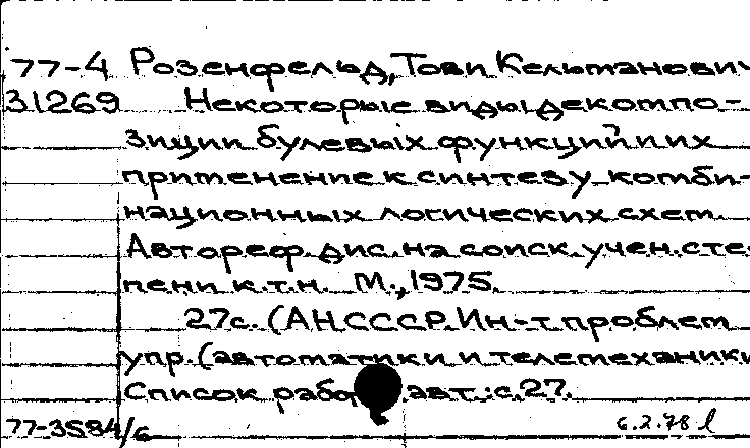 77-4 Розенфельд, Тови Кельманович
31269 Некоторые виды декомпо-
зиции булевых функций и их
применение к синтезу комби-
национных логических схем.
Автореф. дис. на соиск. учен. сте-
пени к.т.н. М., 1975.
27с. (АН СССР. Ин-т проблем
упр. (автоматики и телемеханики
Список работ авт.: с.27.
77-3584/6 6.2.78